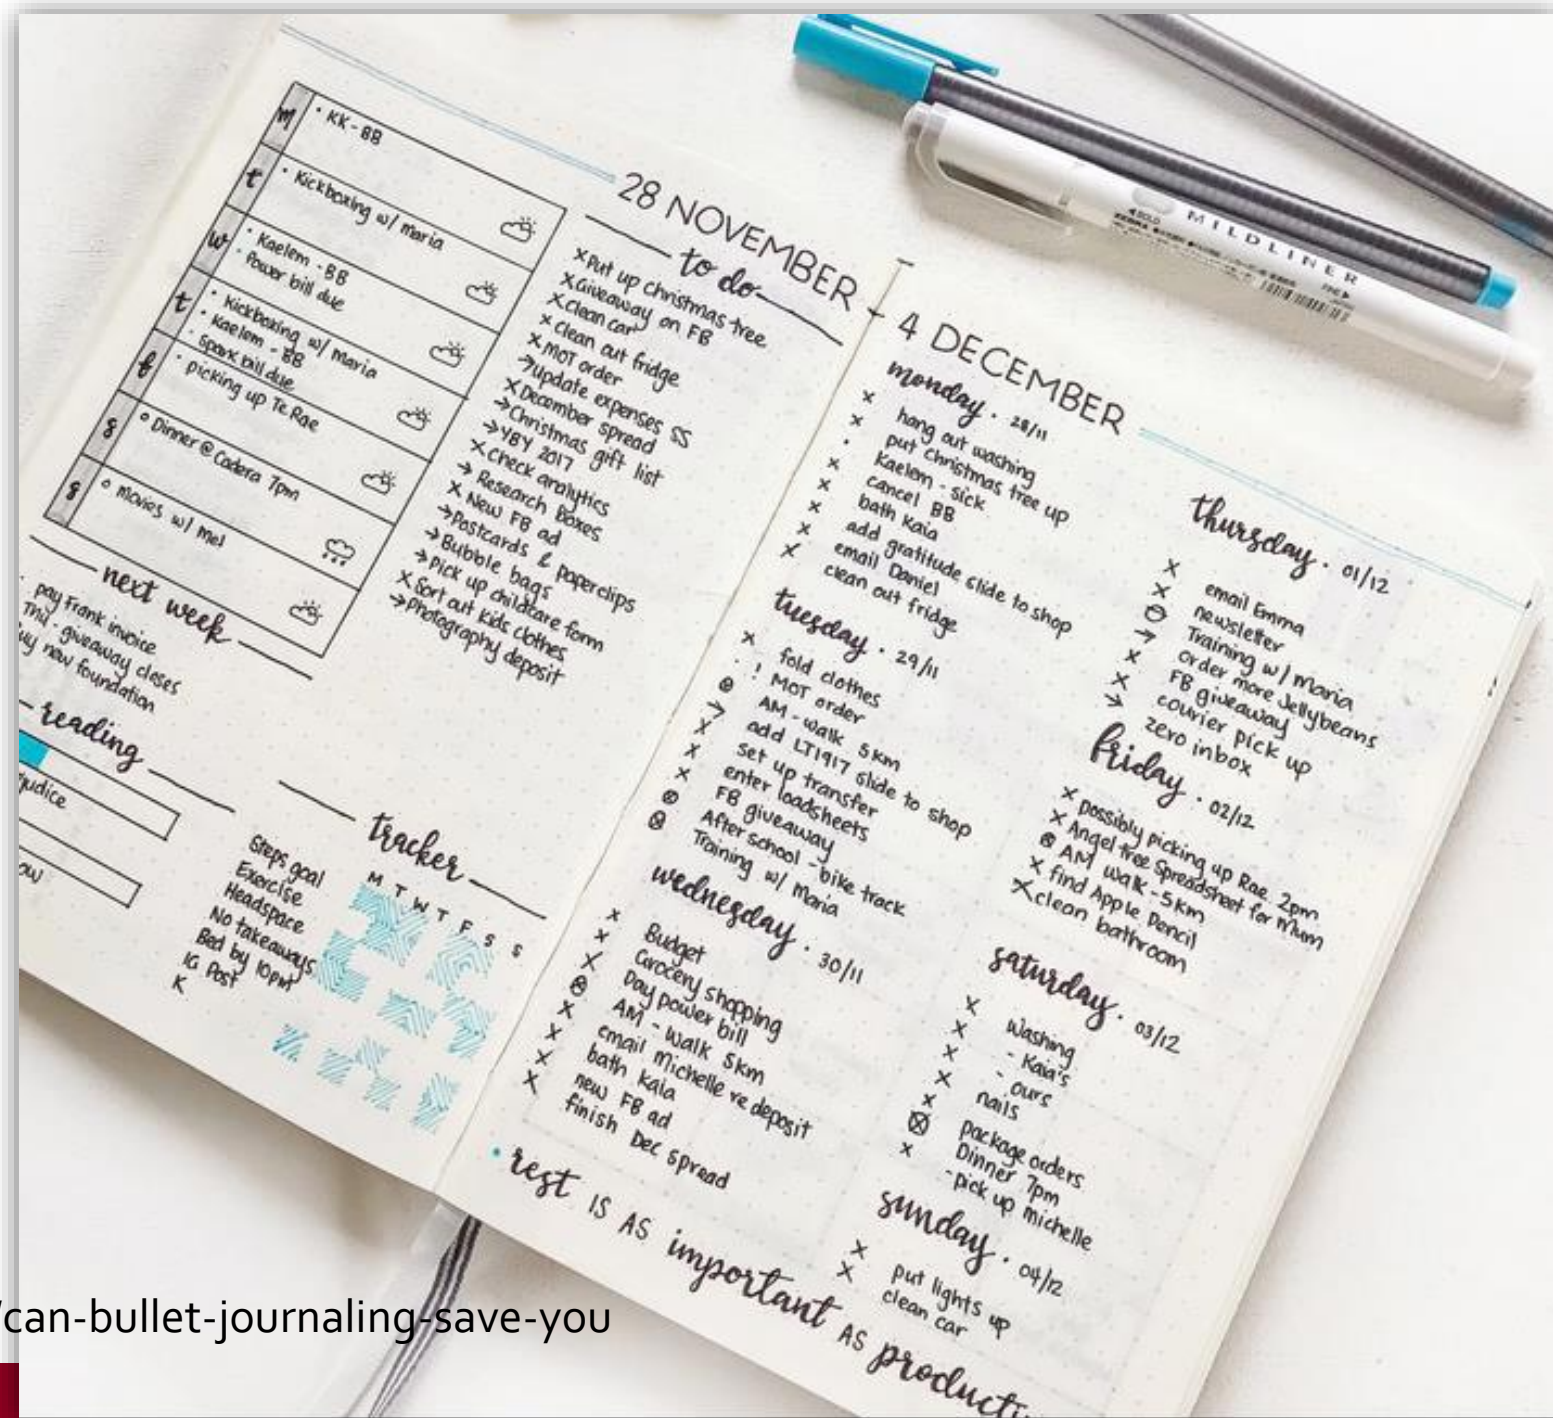 28 NOVEMBER - 4 DECEMBER
m
• KK - BB
t
• Kickboxing w/ maria
w
• Kaelem - BB
• Power bill due
t
• Kickboxing w/ maria
• Kaelem - BB
• Spark bill due
f
• picking up Te Rae
s
○ Dinner @ Cadera 7pm
s
○ movies w/ mel
next week
pay Frank invoice
Thu - giveaway closes
uy new foundation
reading
judice
ow
to do
x Put up christmas tree
x Giveaway on FB
x Clean car
x Clean out fridge
x MOT order
→ update expenses SS
x December spread
→ Christmas gift list
→ YBY 2017
x check analytics
→ Research Boxes
x New FB ad
→ Postcards & paperclips
→ Bubble bags
→ Pick up childcare form
x Sort out kids clothes
→ Photography deposit
tracker
M T W T F S S
Steps goal
Exercise
Headspace
No takeaways
Bed by 10pm
IG Post
K
monday • 28/11
x hang out washing
x put christmas tree up
• Kaelem - sick
x cancel BB
x bath kaia
x add gratitude slide to shop
x email Daniel
x clean out fridge
tuesday • 29/11
x fold clothes
• ! MOT order
⊗ AM - walk 5km
→ add LT1917 slide to shop
x set up transfer
x enter loadsheets
x FB giveaway
⊗ After school - bike track
⊗ Training w/ maria
wednesday • 30/11
x Budget
x Grocery shopping
x Pay power bill
⊗ AM - walk 5km
x email michelle re deposit
x bath kaia
x new FB ad
x finish Dec spread
thursday • 01/12
x email Emma
x newsletter
⊖ Training w/ maria
→ order more Jellybeans
x FB giveaway
x courier pick up
→ zero inbox
friday • 02/12
x possibly picking up Rae 2pm
x Angel tree Spreadsheet for mum
⊗ AM walk - 5km
x find Apple Pencil
x clean bathroom
saturday • 03/12
x Washing
x - Kaia's
x - ours
x nails
x package orders
⊗ Dinner 7pm
x - pick up michelle
sunday • 04/12
x put lights up
x clean car
• rest IS AS important AS producti
MILDLINER
ZEBRA
/can-bullet-journaling-save-you